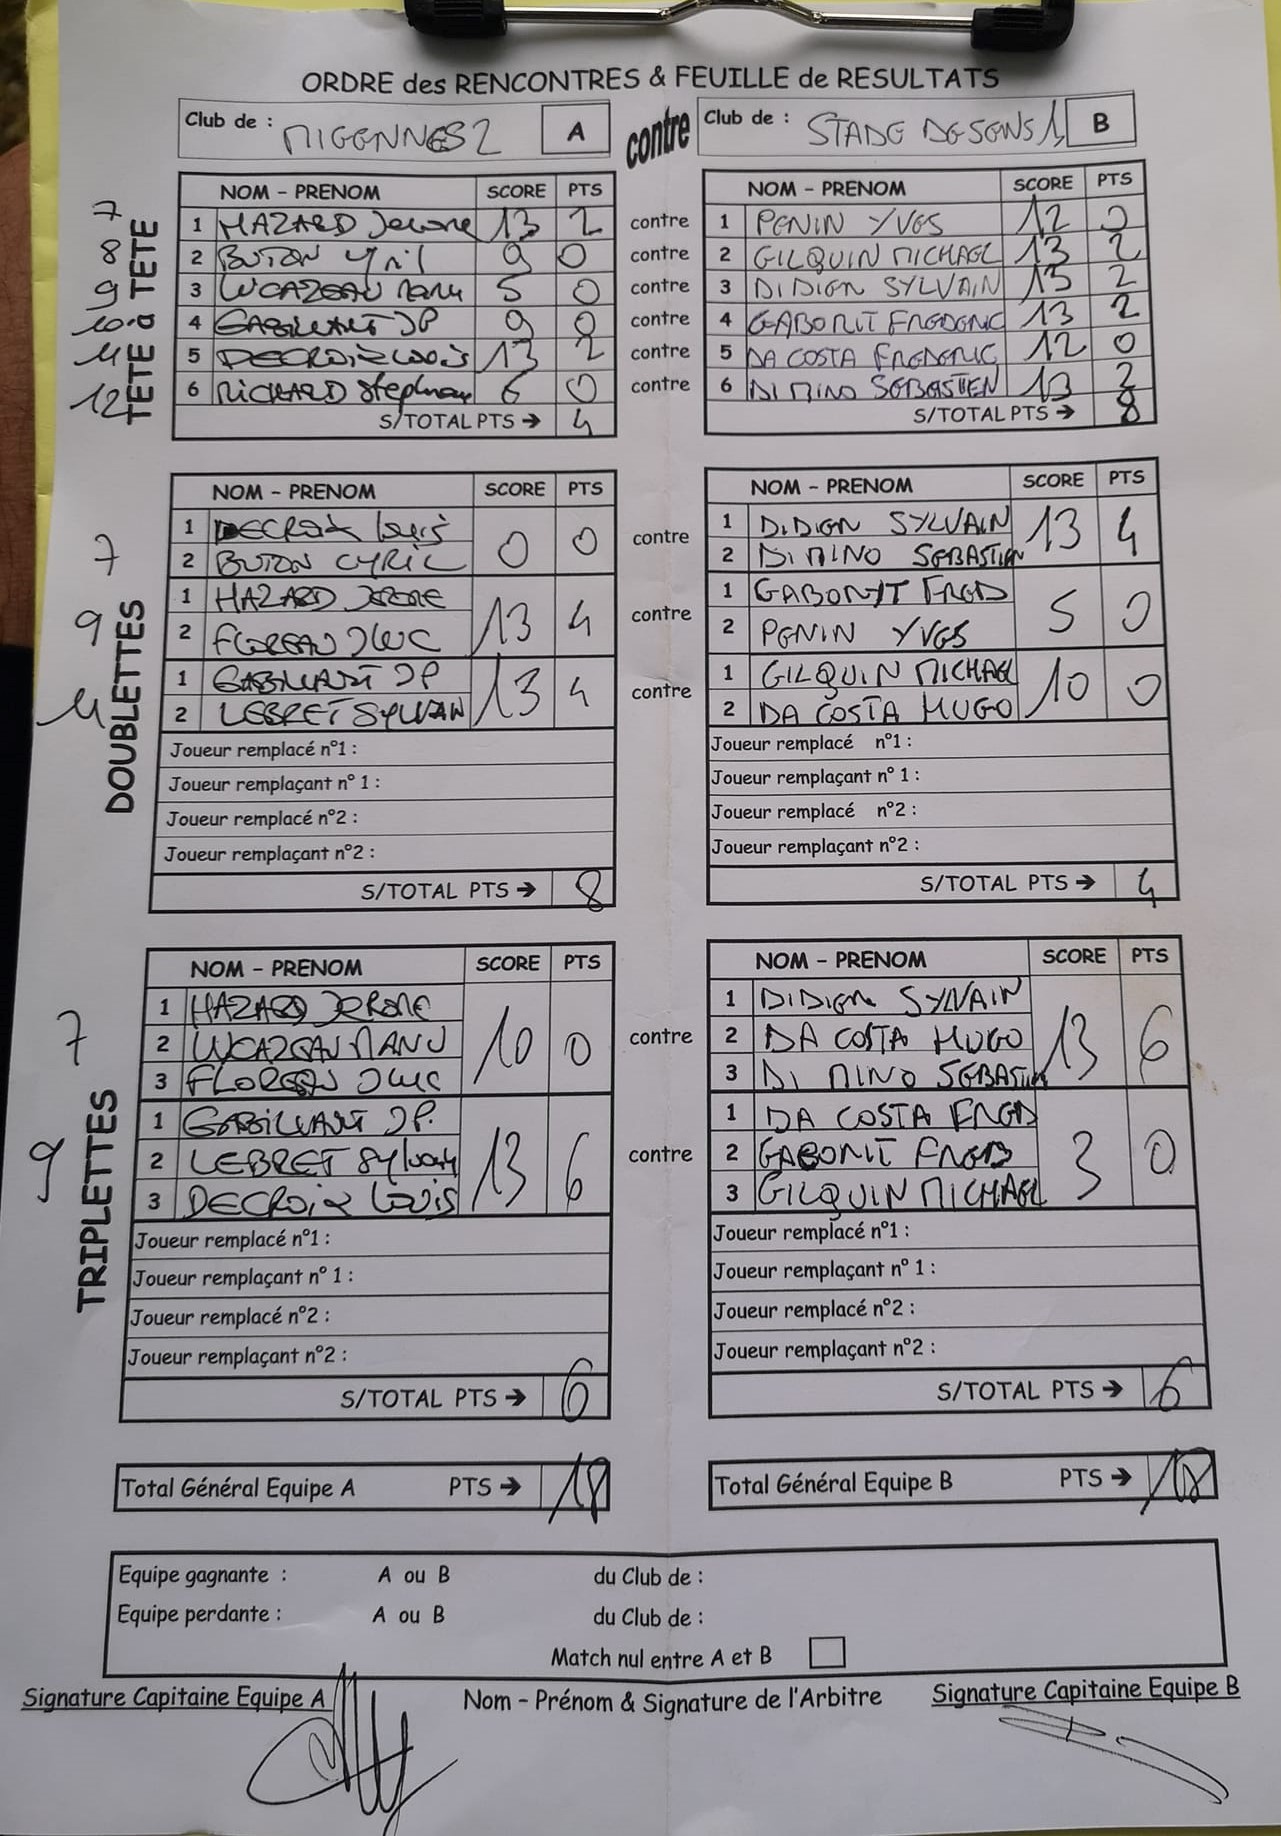 ORDRE des RENCONTRES & FEUILLE de RESULTATS
Club de : MIGENNES 2 A contre Club de : STADE DE SENS 1 B
TETE à TETE
NOM - PRENOM SCORE PTS NOM - PRENOM SCORE PTS
7 1 HAZARD Jerome 13 2 contre 1 PENIN YVES 12 0
8 2 BUTON Cyril 9 0 contre 2 GILQUIN MICHAEL 13 2
9 3 LUCAZEAU Manu 5 0 contre 3 DIDIGN SYLVAIN 13 2
10 4 GABILLANT JP 9 0 contre 4 GABORIT FREDERIC 13 2
11 5 DECROIX Louis 13 2 contre 5 DA COSTA FREDERIC 12 0
12 6 RICHARD Stephane 6 0 contre 6 DI MINO SEBASTIEN 13 2
S/TOTAL PTS → 4 S/TOTAL PTS → 8
DOUBLETTES
NOM - PRENOM SCORE PTS NOM - PRENOM SCORE PTS
7 1 DECROIX Louis 0 0 contre 1 DIDIGN SYLVAIN 13 4
2 BUTON CYRIL 2 DI MINO SEBASTIEN
9 1 HAZARD JEROME 13 4 contre 1 GABORIT FRED 5 0
2 FLOREAU JLUC 2 PENIN YVES
11 1 GABILLANT JP 13 4 contre 1 GILQUIN MICHAEL 10 0
2 LEBRET SYLVAIN 2 DA COSTA HUGO
Joueur remplacé n°1 : Joueur remplacé n°1 :
Joueur remplaçant n° 1 : Joueur remplaçant n° 1 :
Joueur remplacé n°2 : Joueur remplacé n°2 :
Joueur remplaçant n°2 : Joueur remplaçant n°2 :
S/TOTAL PTS → 8 S/TOTAL PTS → 4
TRIPLETTES
NOM - PRENOM SCORE PTS NOM - PRENOM SCORE PTS
7 1 HAZARD JEROME 10 0 contre 1 DIDIGN SYLVAIN 13 6
2 LUCAZEAU MANU 2 DA COSTA HUGO
3 FLOREAU JLUC 3 DI MINO SEBASTIEN
9 1 GABILLANT JP. 13 6 contre 1 DA COSTA FRED 3 0
2 LEBRET Sylvain 2 GABORIT FRED
3 DECROIX LOUIS 3 GILQUIN MICHAEL
Joueur remplacé n°1 : Joueur remplacé n°1 :
Joueur remplaçant n° 1 : Joueur remplaçant n° 1 :
Joueur remplacé n°2 : Joueur remplacé n°2 :
Joueur remplaçant n°2 : Joueur remplaçant n°2 :
S/TOTAL PTS → 6 S/TOTAL PTS → 6
Total Général Equipe A PTS → 18 Total Général Equipe B PTS → 18
Equipe gagnante : A ou B du Club de :
Equipe perdante : A ou B du Club de :
Match nul entre A et B
Signature Capitaine Equipe A Nom - Prénom & Signature de l'Arbitre Signature Capitaine Equipe B